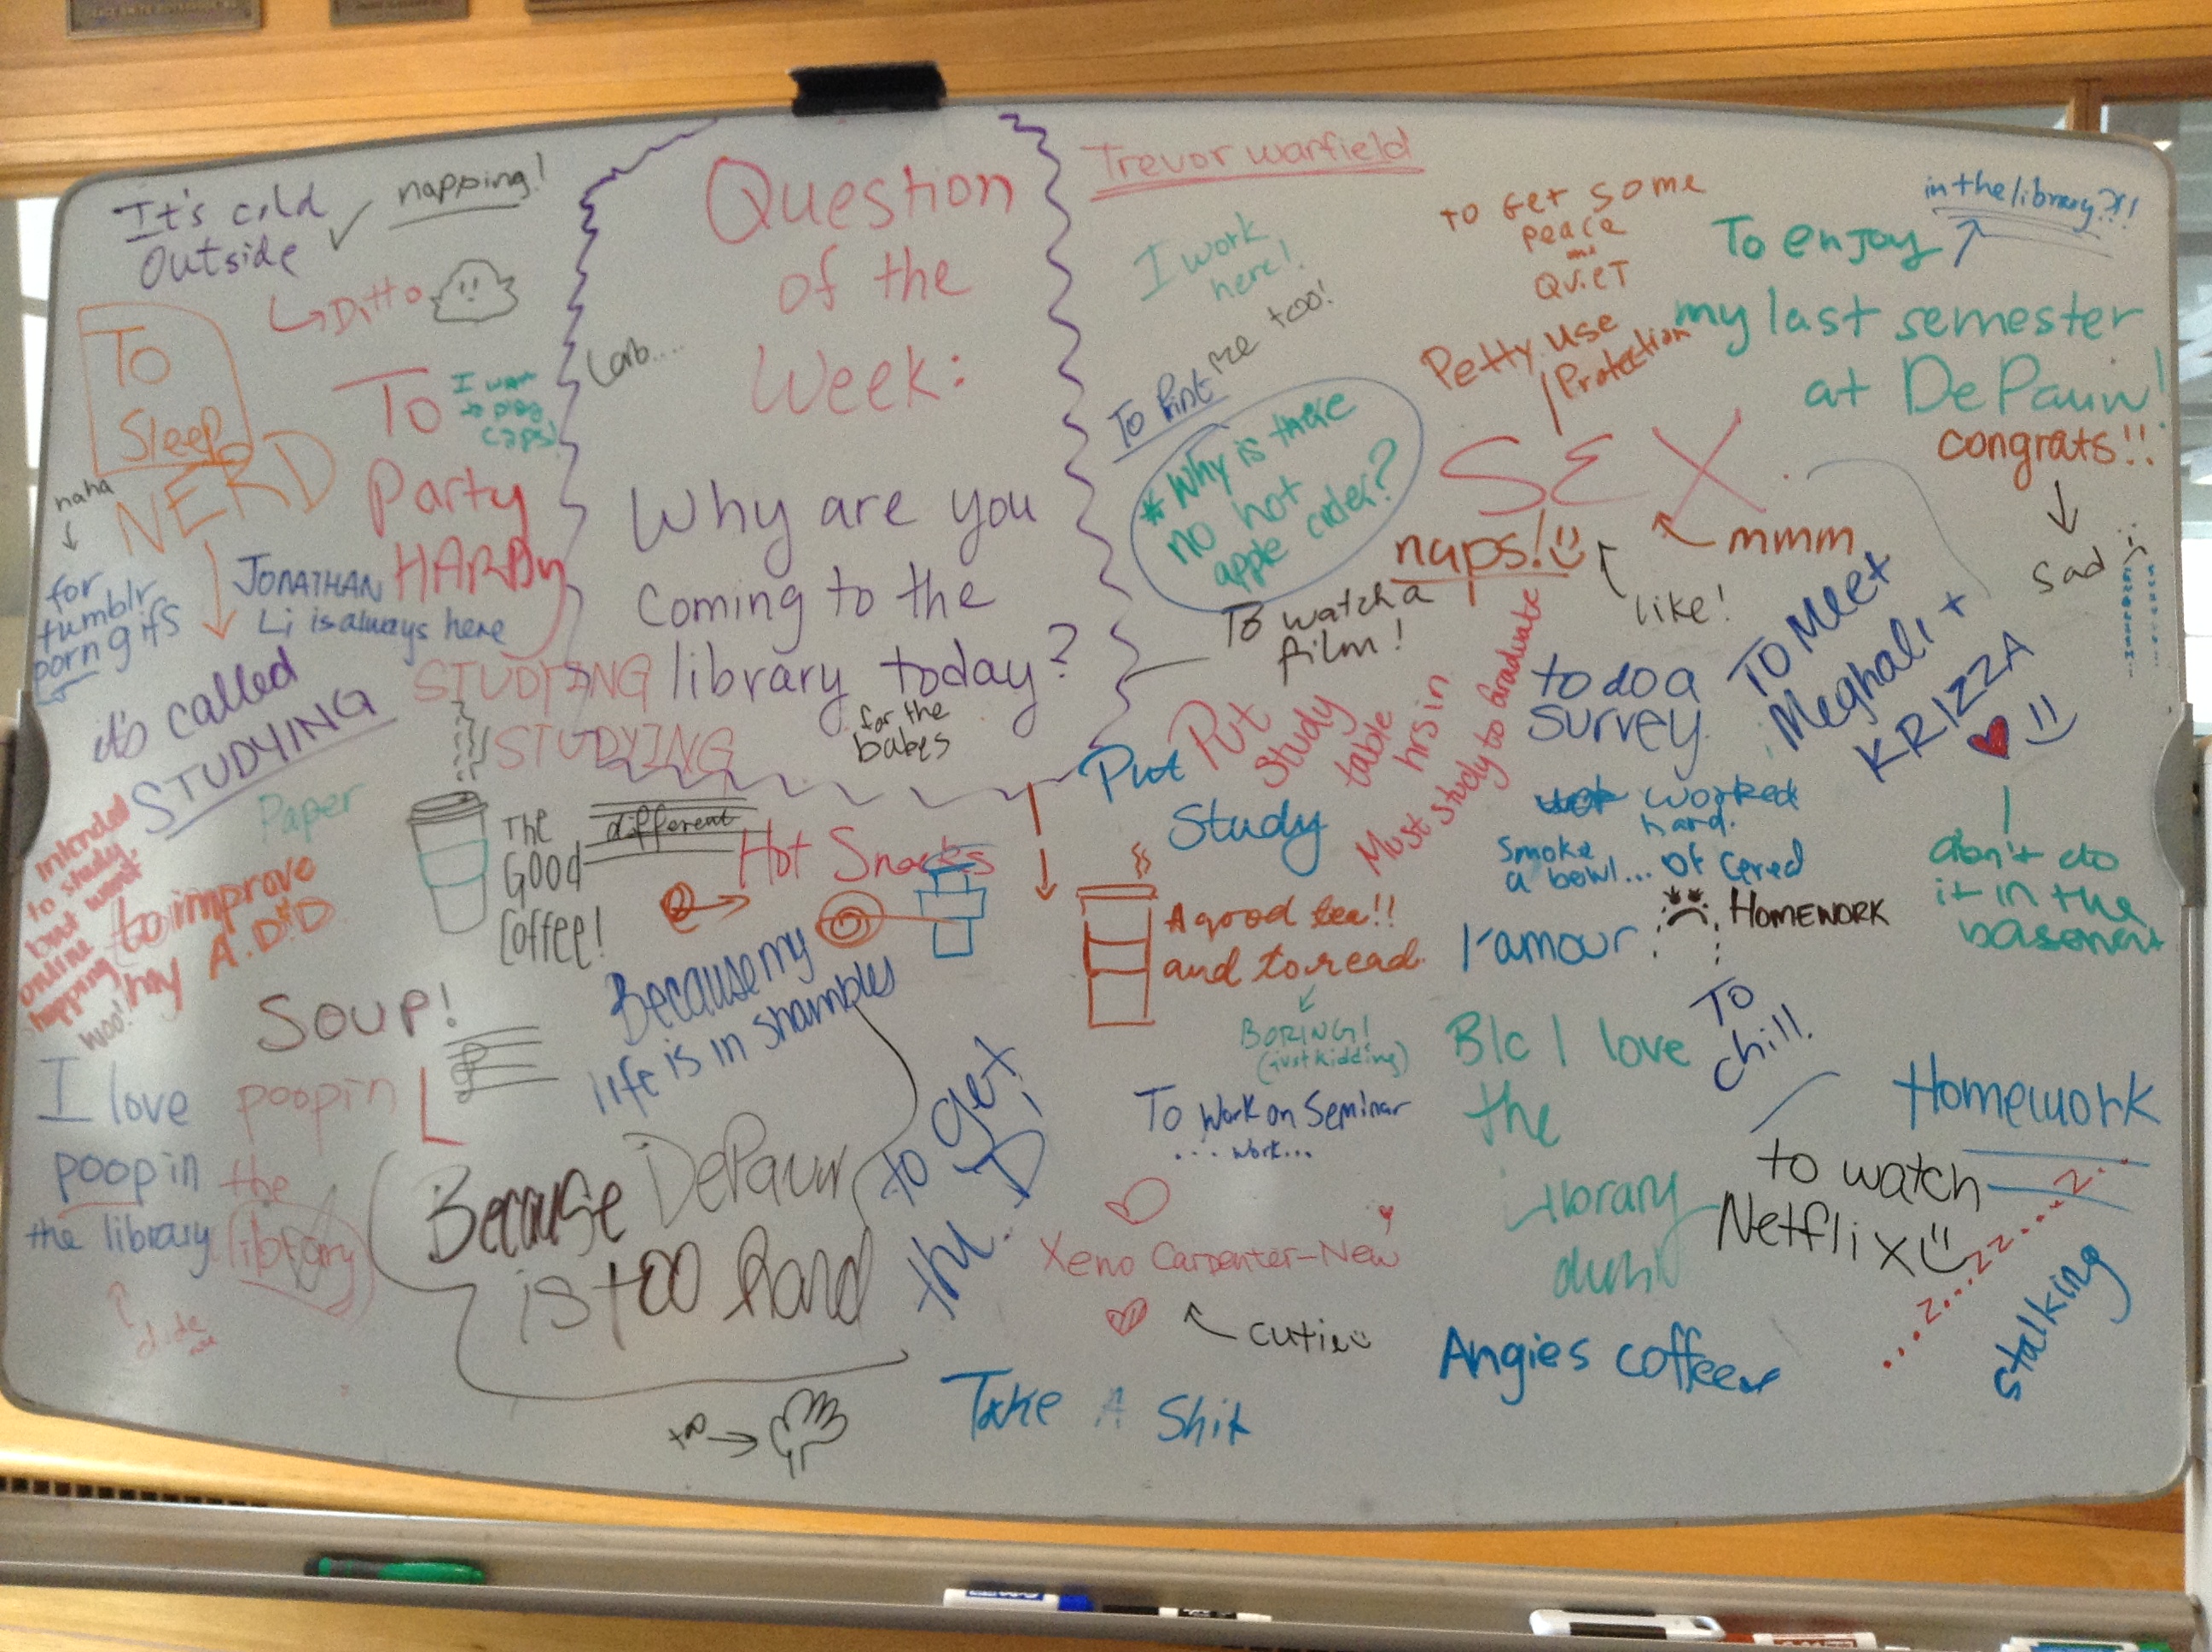 It's cold
outside
napping!
Ditto
To
Sleep
NERD
haha
for
tumblr
porn gifs
To
Party
HARDy
I want
to play
caps!
JONATHAN
Li is always here
it's called
STUDYING
STUDYING
STUDYING
Question
of the
Week:
Why are you
coming to the
library today?
for the
babes
Trevor Warfield
I work
here!
me too!
To Print
* Why is there
no hot
apple cider?
To get some
peace
and
QuieT
Petty use
Protection
SEX
naps!
mmm
like!
in the library?!!
To enjoy
my last semester
at DePauw!
congrats!!
Sad
To watch a
film!
Put
Study
table
hrs in
Must study to Graduate
Put
Study
to do a
survey.
To Meet
Meghali +
KRIZZA
worked
hard.
Smoke
a bowl... of
l'amour
HOMEWORK
don't do
it in the
basement
Paper
intended
to study,
but went
online
napping
woo!
to improve
my A.D.D
The
Good
Coffee!
different
Hot Snacks
A good tea!!
and to read
BORING!
(just kidding)
Soup!
Because my
life is in shambles
I love
poopin
the library
poopin
the
library
Because DePauw
is too hard
to get
the D
To work on Seminar
... work...
B/c I love
the
Library
To
chill.
Homework
to watch
Netflix
z... z... z... z...
stalking
Xeno Carpenter-New
cutie
Angies coffee
Take A Shit